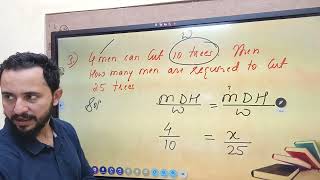 3) 4 men can Cut 10 trees. Then
How many men are required to Cut
25 trees
Sol
mDH/W = mDH/W
4/10 = x/25